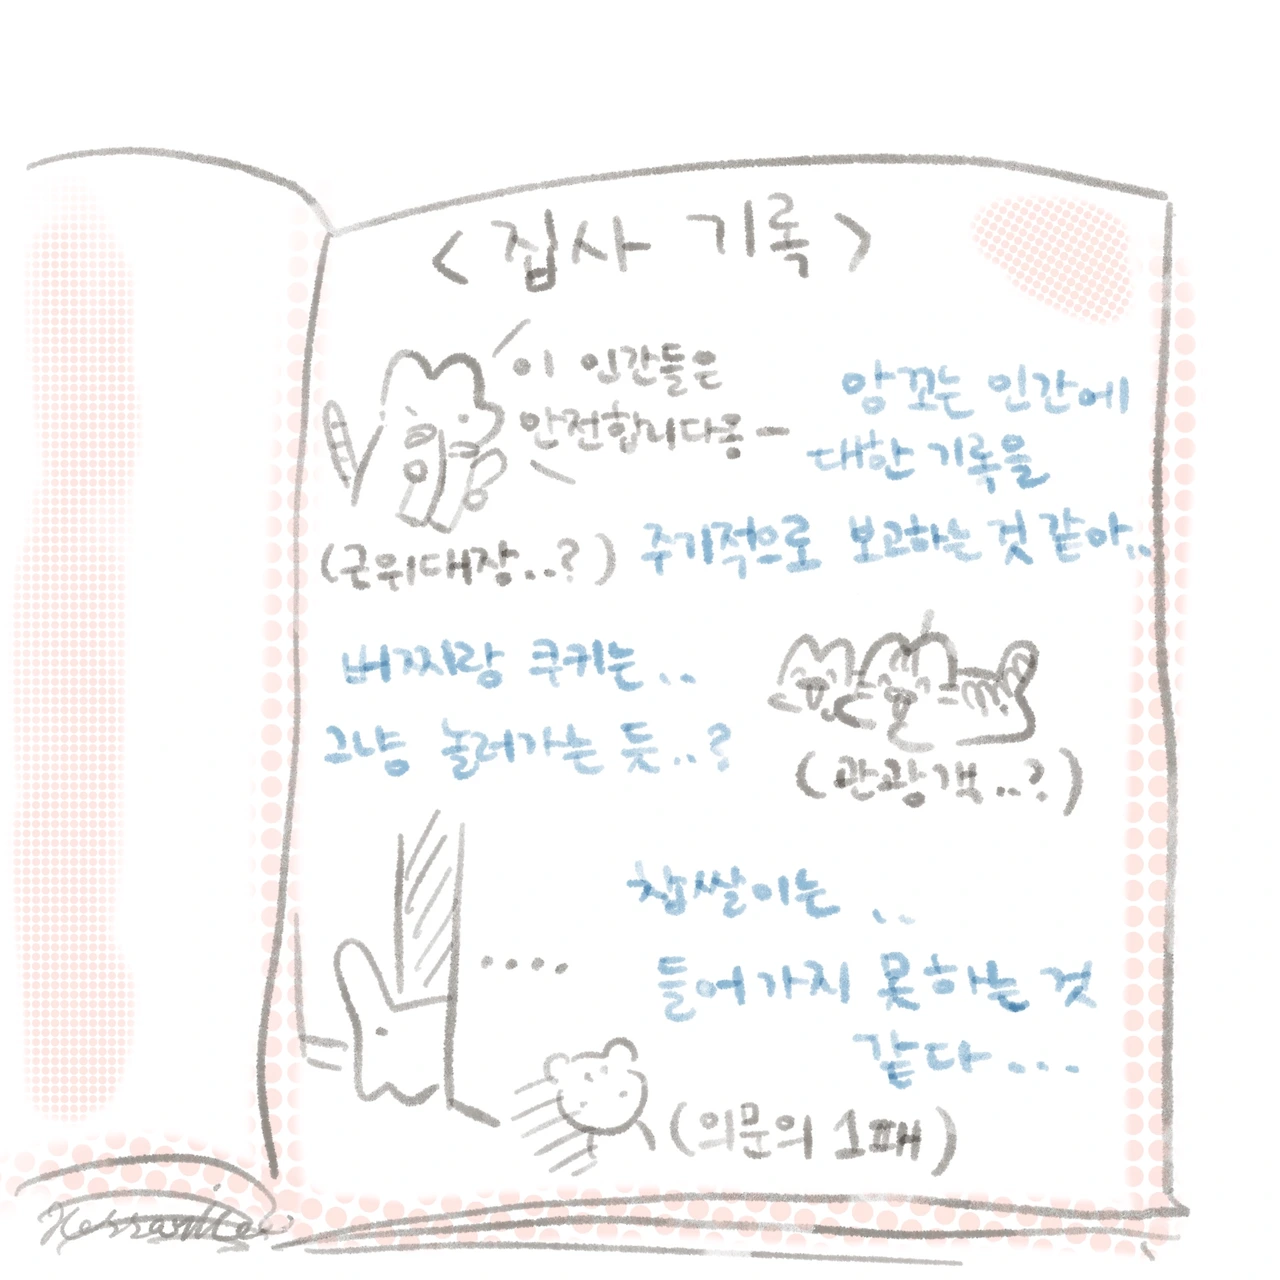 < 집사 기록 >
이 인간들은
안전합니다롱-
앙꼬는 인간에
대한 기록을
(근위대장..?)
주기적으로 보고하는 것 같아..
버찌랑 쿠키는..
그냥 놀러가는 듯..?
(관광객..?)
찹쌀이는 ..
....
들어가지 못하는 것
같다...
(의문의 1패)